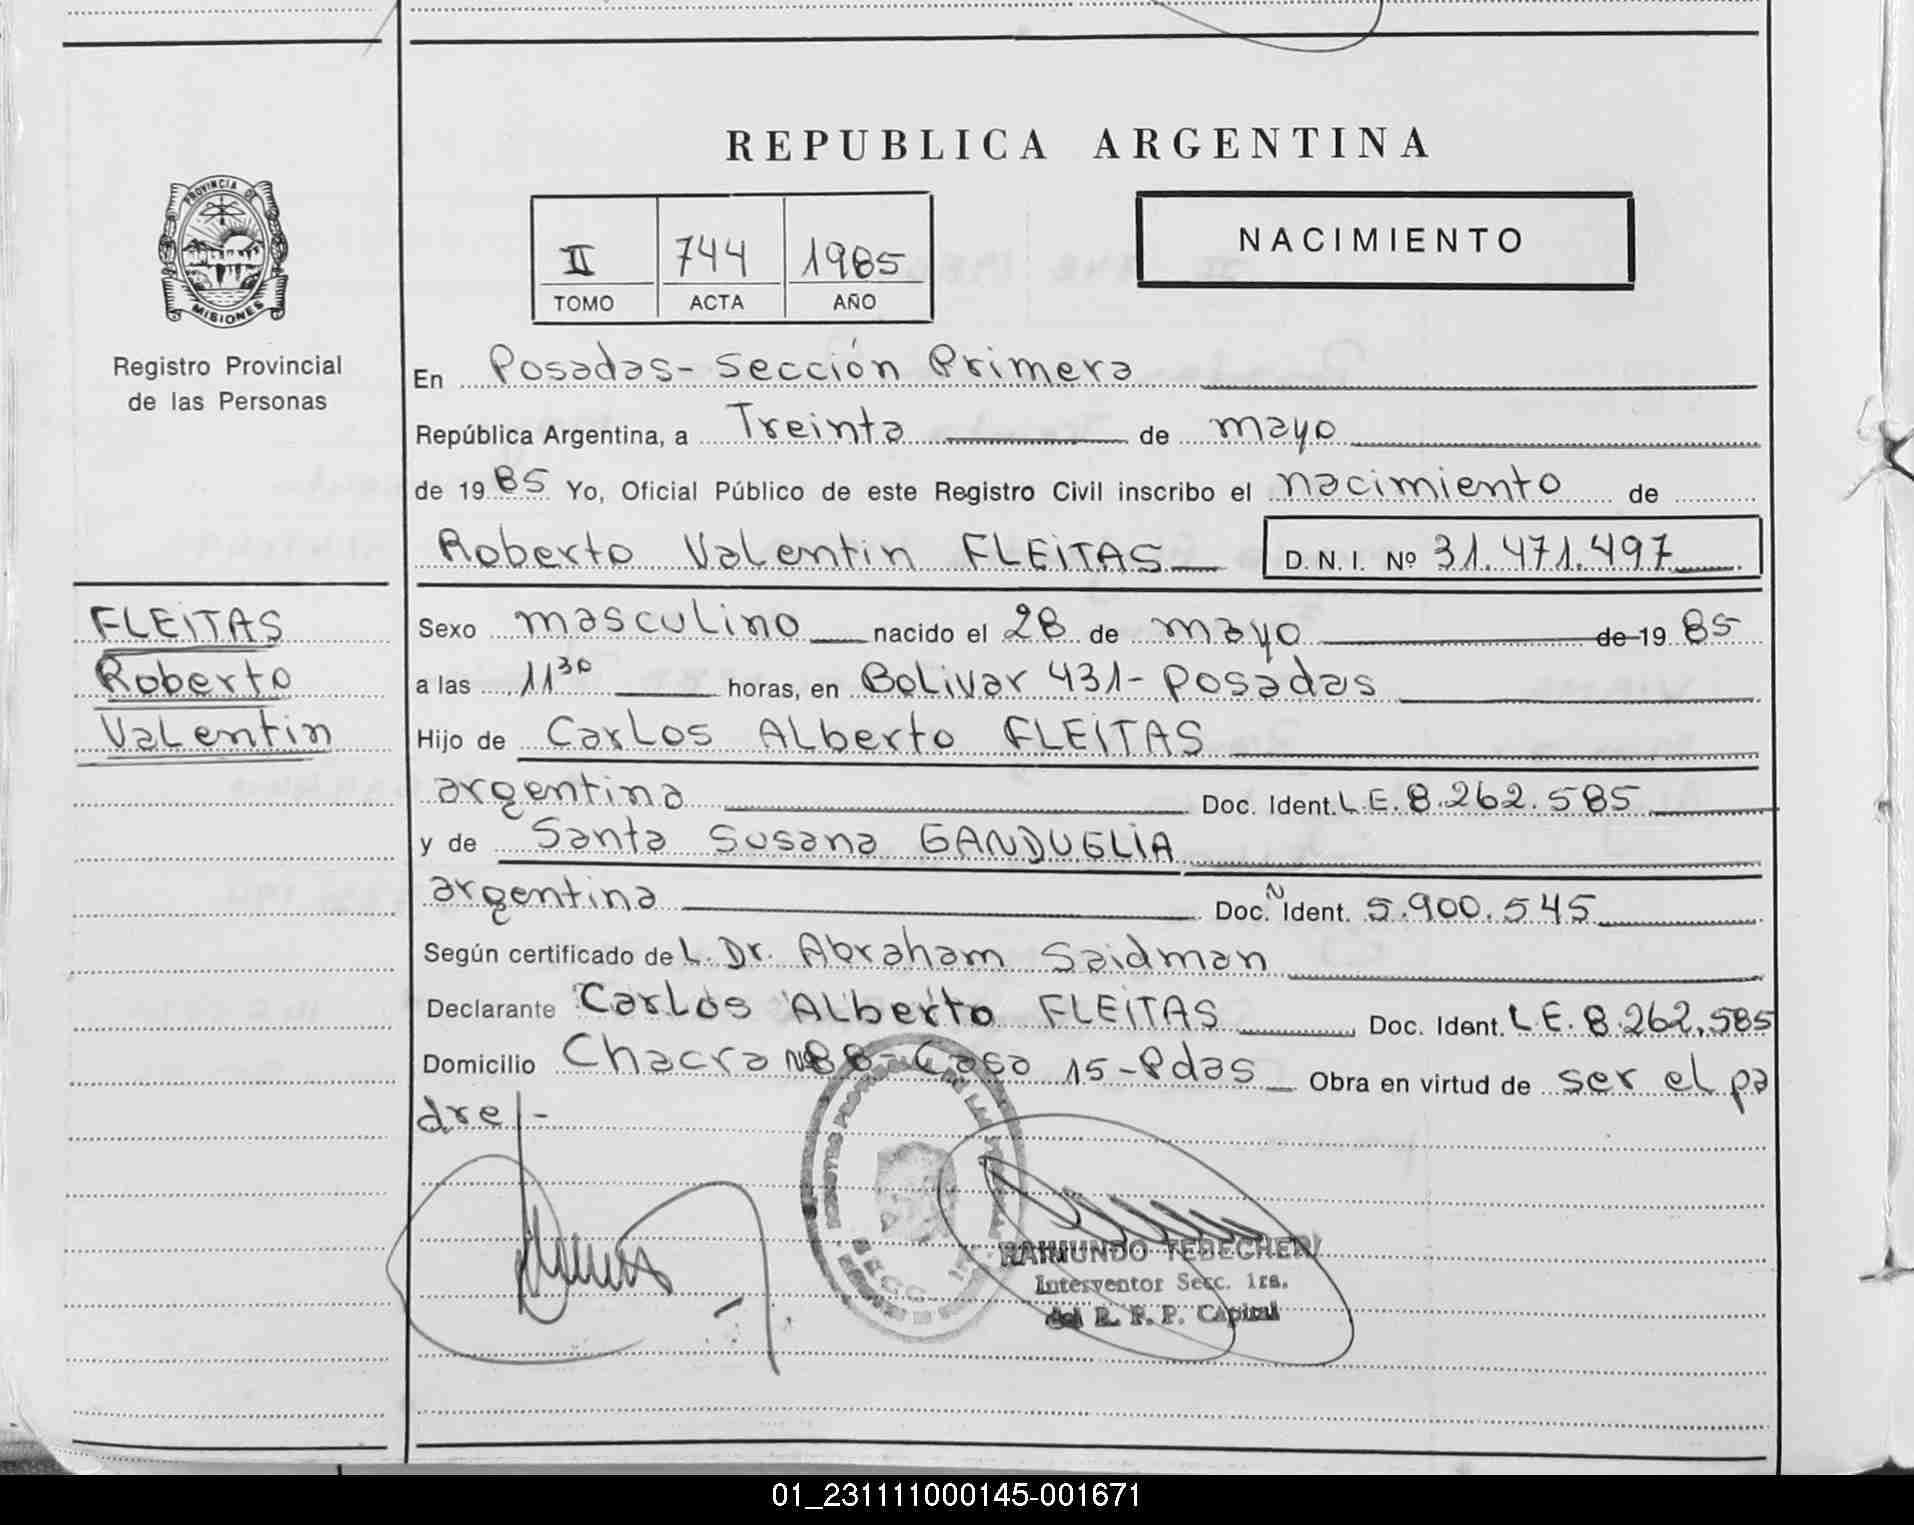 REPUBLICA ARGENTINA
PROVINCIA DE
MISIONES
Registro Provincial
de las Personas
II 744 1985
TOMO ACTA AÑO
NACIMIENTO
En Posadas - Sección Primera
República Argentina, a Treinta de mayo
de 1985 Yo, Oficial Público de este Registro Civil inscribo el nacimiento de
Roberto Valentin FLEITAS D. N. I. Nº 31.471.497
FLEITAS
Roberto
Valentin
Sexo masculino nacido el 28 de mayo de 1985
a las 11 30 horas, en Bolivar 431 - Posadas
Hijo de Carlos Alberto FLEITAS
argentina Doc. Ident. L.E. 8.262.585
y de Santa Susana GANDUGLIA
argentina Doc. N Ident. 5.900.545
Según certificado del Dr. Abraham Saidman
Declarante Carlos Alberto FLEITAS Doc. Ident. L.E. 8.262.585
Domicilio Chacra Nº 88 - Casa 15 - Pdas Obra en virtud de ser el pa
dre -
RAIMUNDO TEBECHERI
Interventor Secc. 1ra.
del R. P. P. Capital
01_231111000145-001671